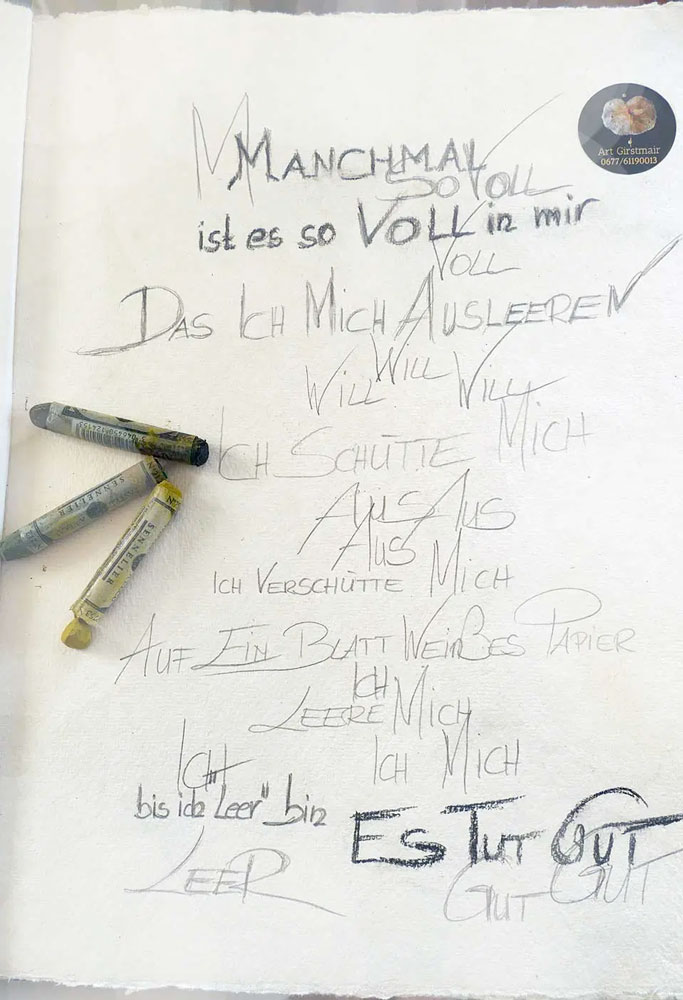 Art Girstmair
0677/61190013
M MANCHMAL
SO VOLL
ist es so VOLL in mir
VOLL
DAS ICH MICH AUSLEEREN
WILL WILL WILL
ICH SCHÜTTE MICH
AUS AUS
AUS
ICH VERSCHÜTTE MICH
AUF EIN BLATT WEIßES PAPIER
ICH
LEERE MICH
ICH ICH MICH
bis ich "Leer" bin
ES TUT GUT
LEER GUT GUT
SENNELIER
SENNELIER